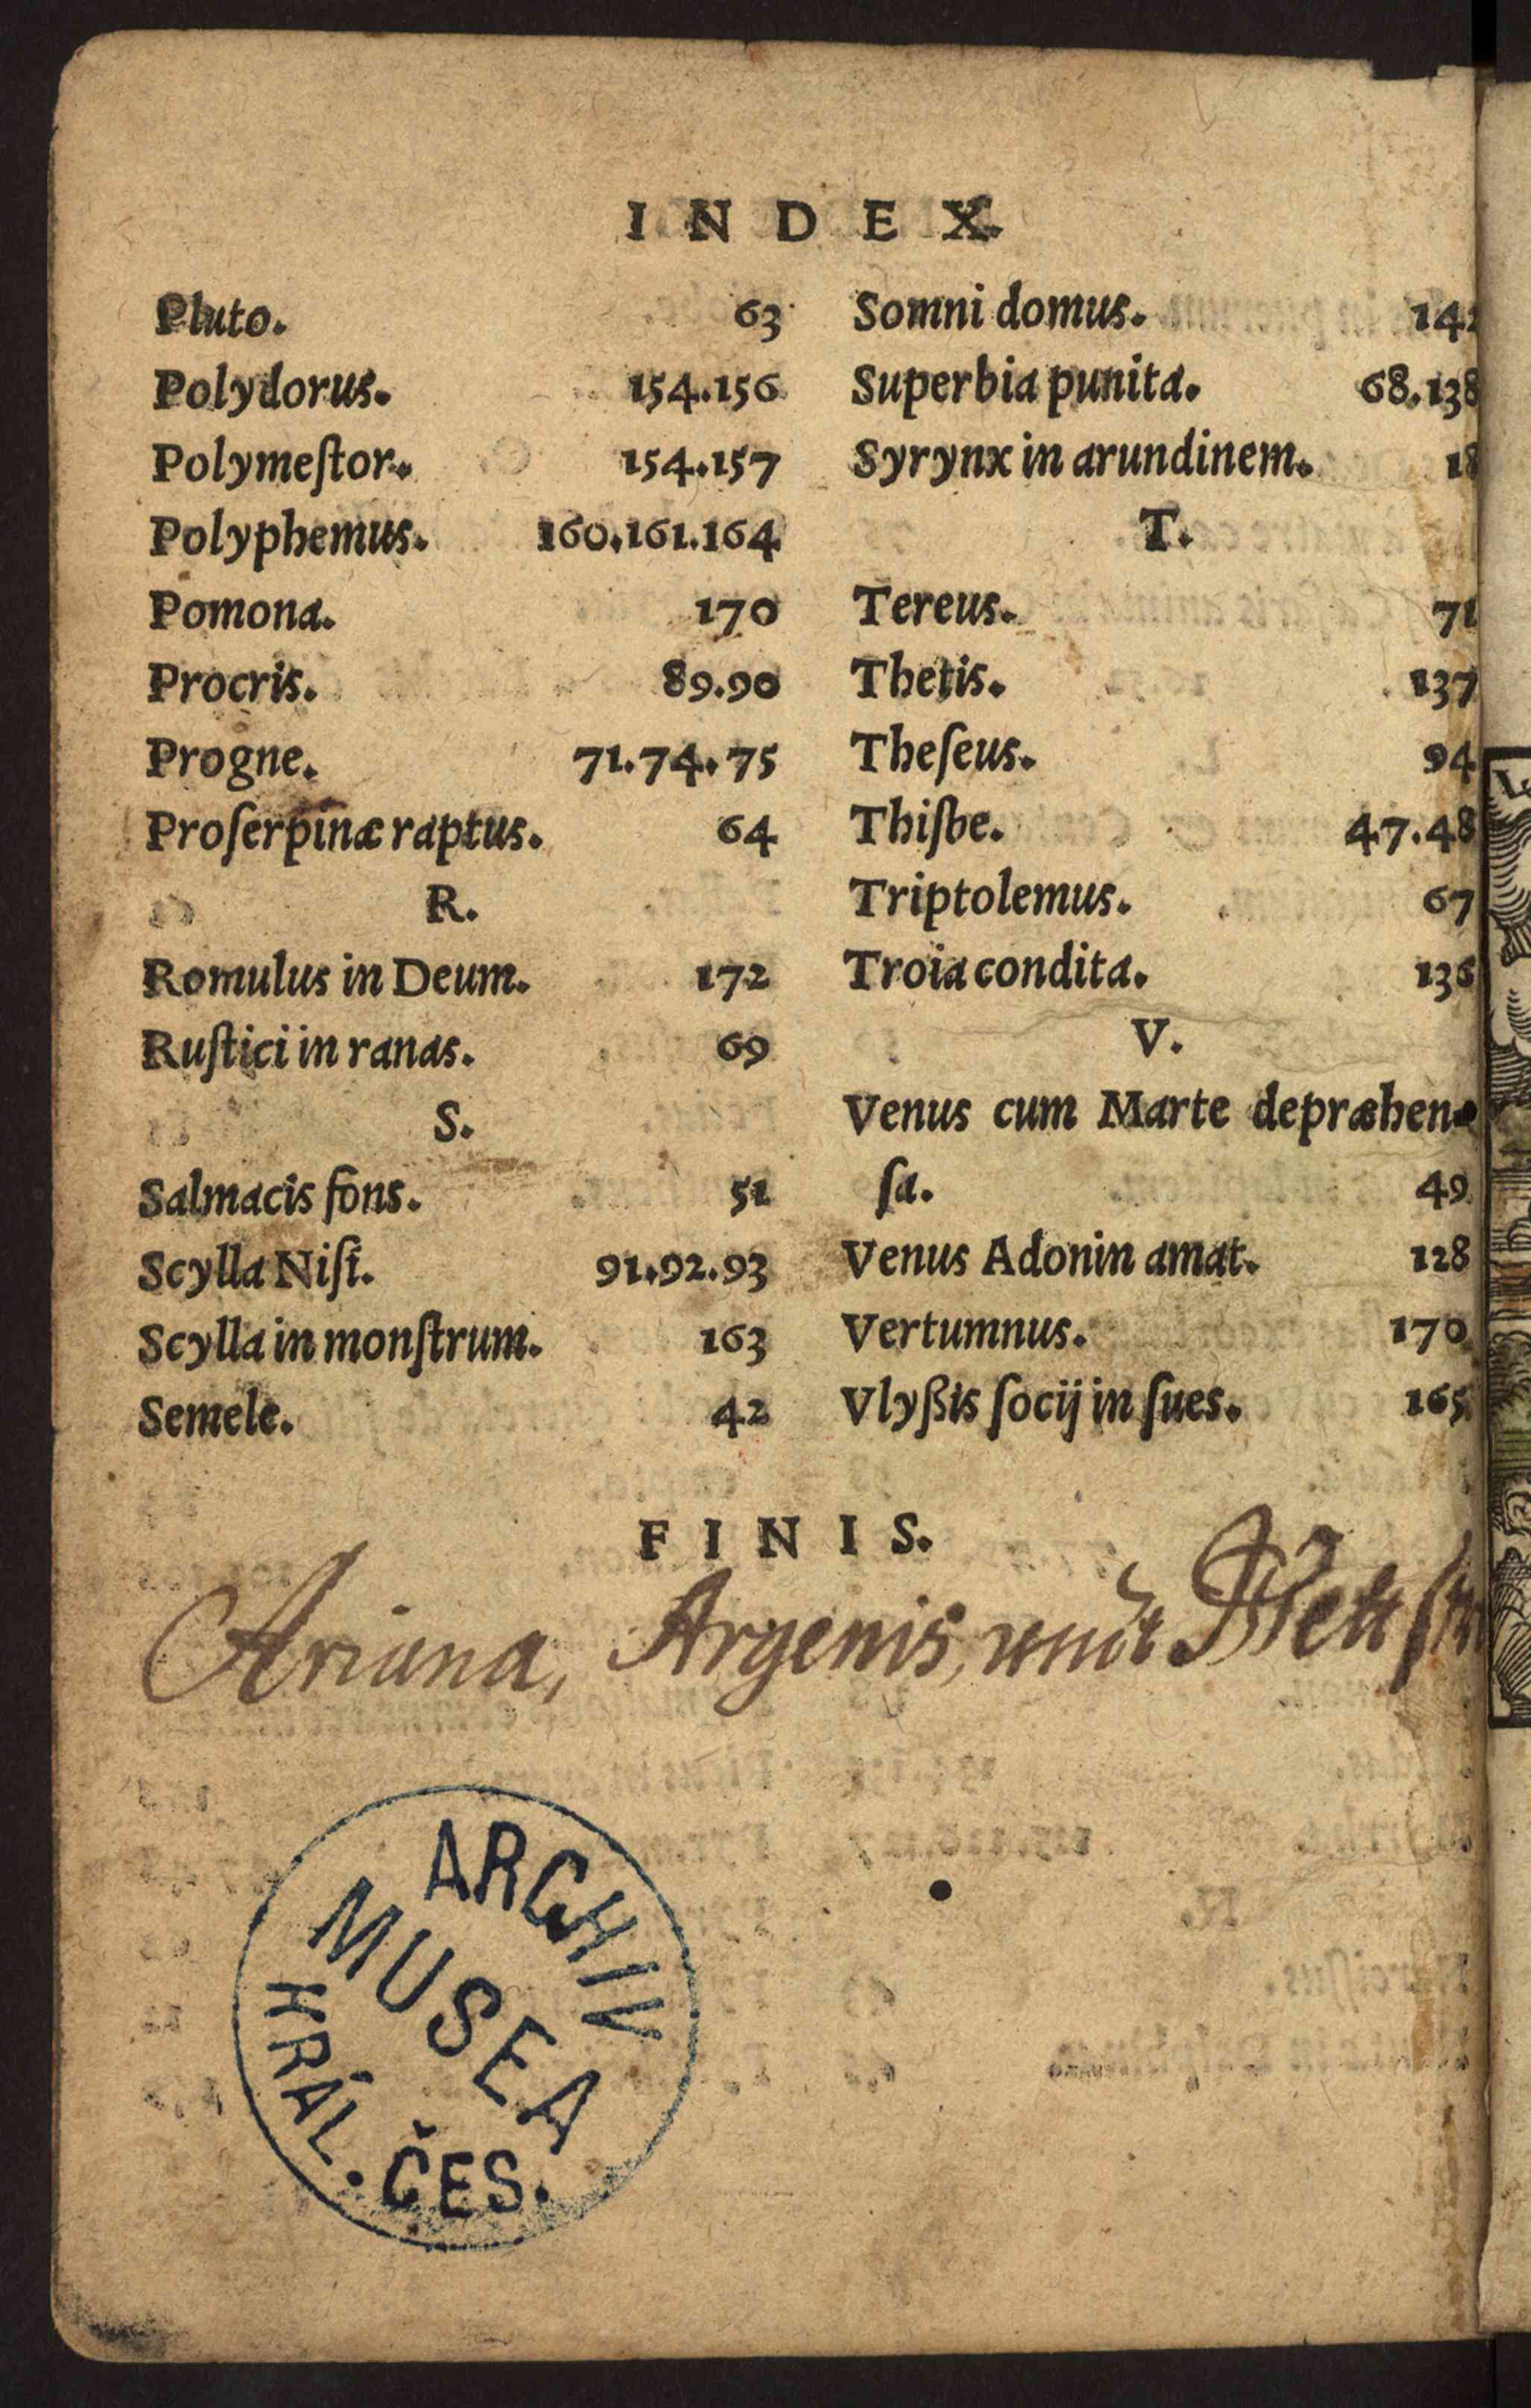 INDEX.
Pluto. 63
Polydorus. 154.156
Polymeſtor. 154.157
Polyphemus. 160.161.164
Pomona. 170
Procris. 89.90
Progne. 71.74.75
Proſerpinæ raptus. 64
R.
Romulus in Deum. 172
Ruſtici in ranas. 69
S.
Salmacis fons. 51
Scylla Niſi. 91.92.93
Scylla in monſtrum. 163
Semele. 42
Somni domus.
Superbia punita. 68.138
Syrynx in arundinem. 18
T.
Tereus. 71
Thetis. 137
Theſeus. 94
Thiſbe. 47.48
Triptolemus. 67
Troia condita. 136
V.
Venus cum Marte depræhen-
ſa. 49
Venus Adonin amat. 128
Vertumnus. 170
Vlyßis ſocij in ſues. 165
FINIS.
Ariana, Argenis, undt
ARCHIV
MUSEA
KRÁL. ČES.